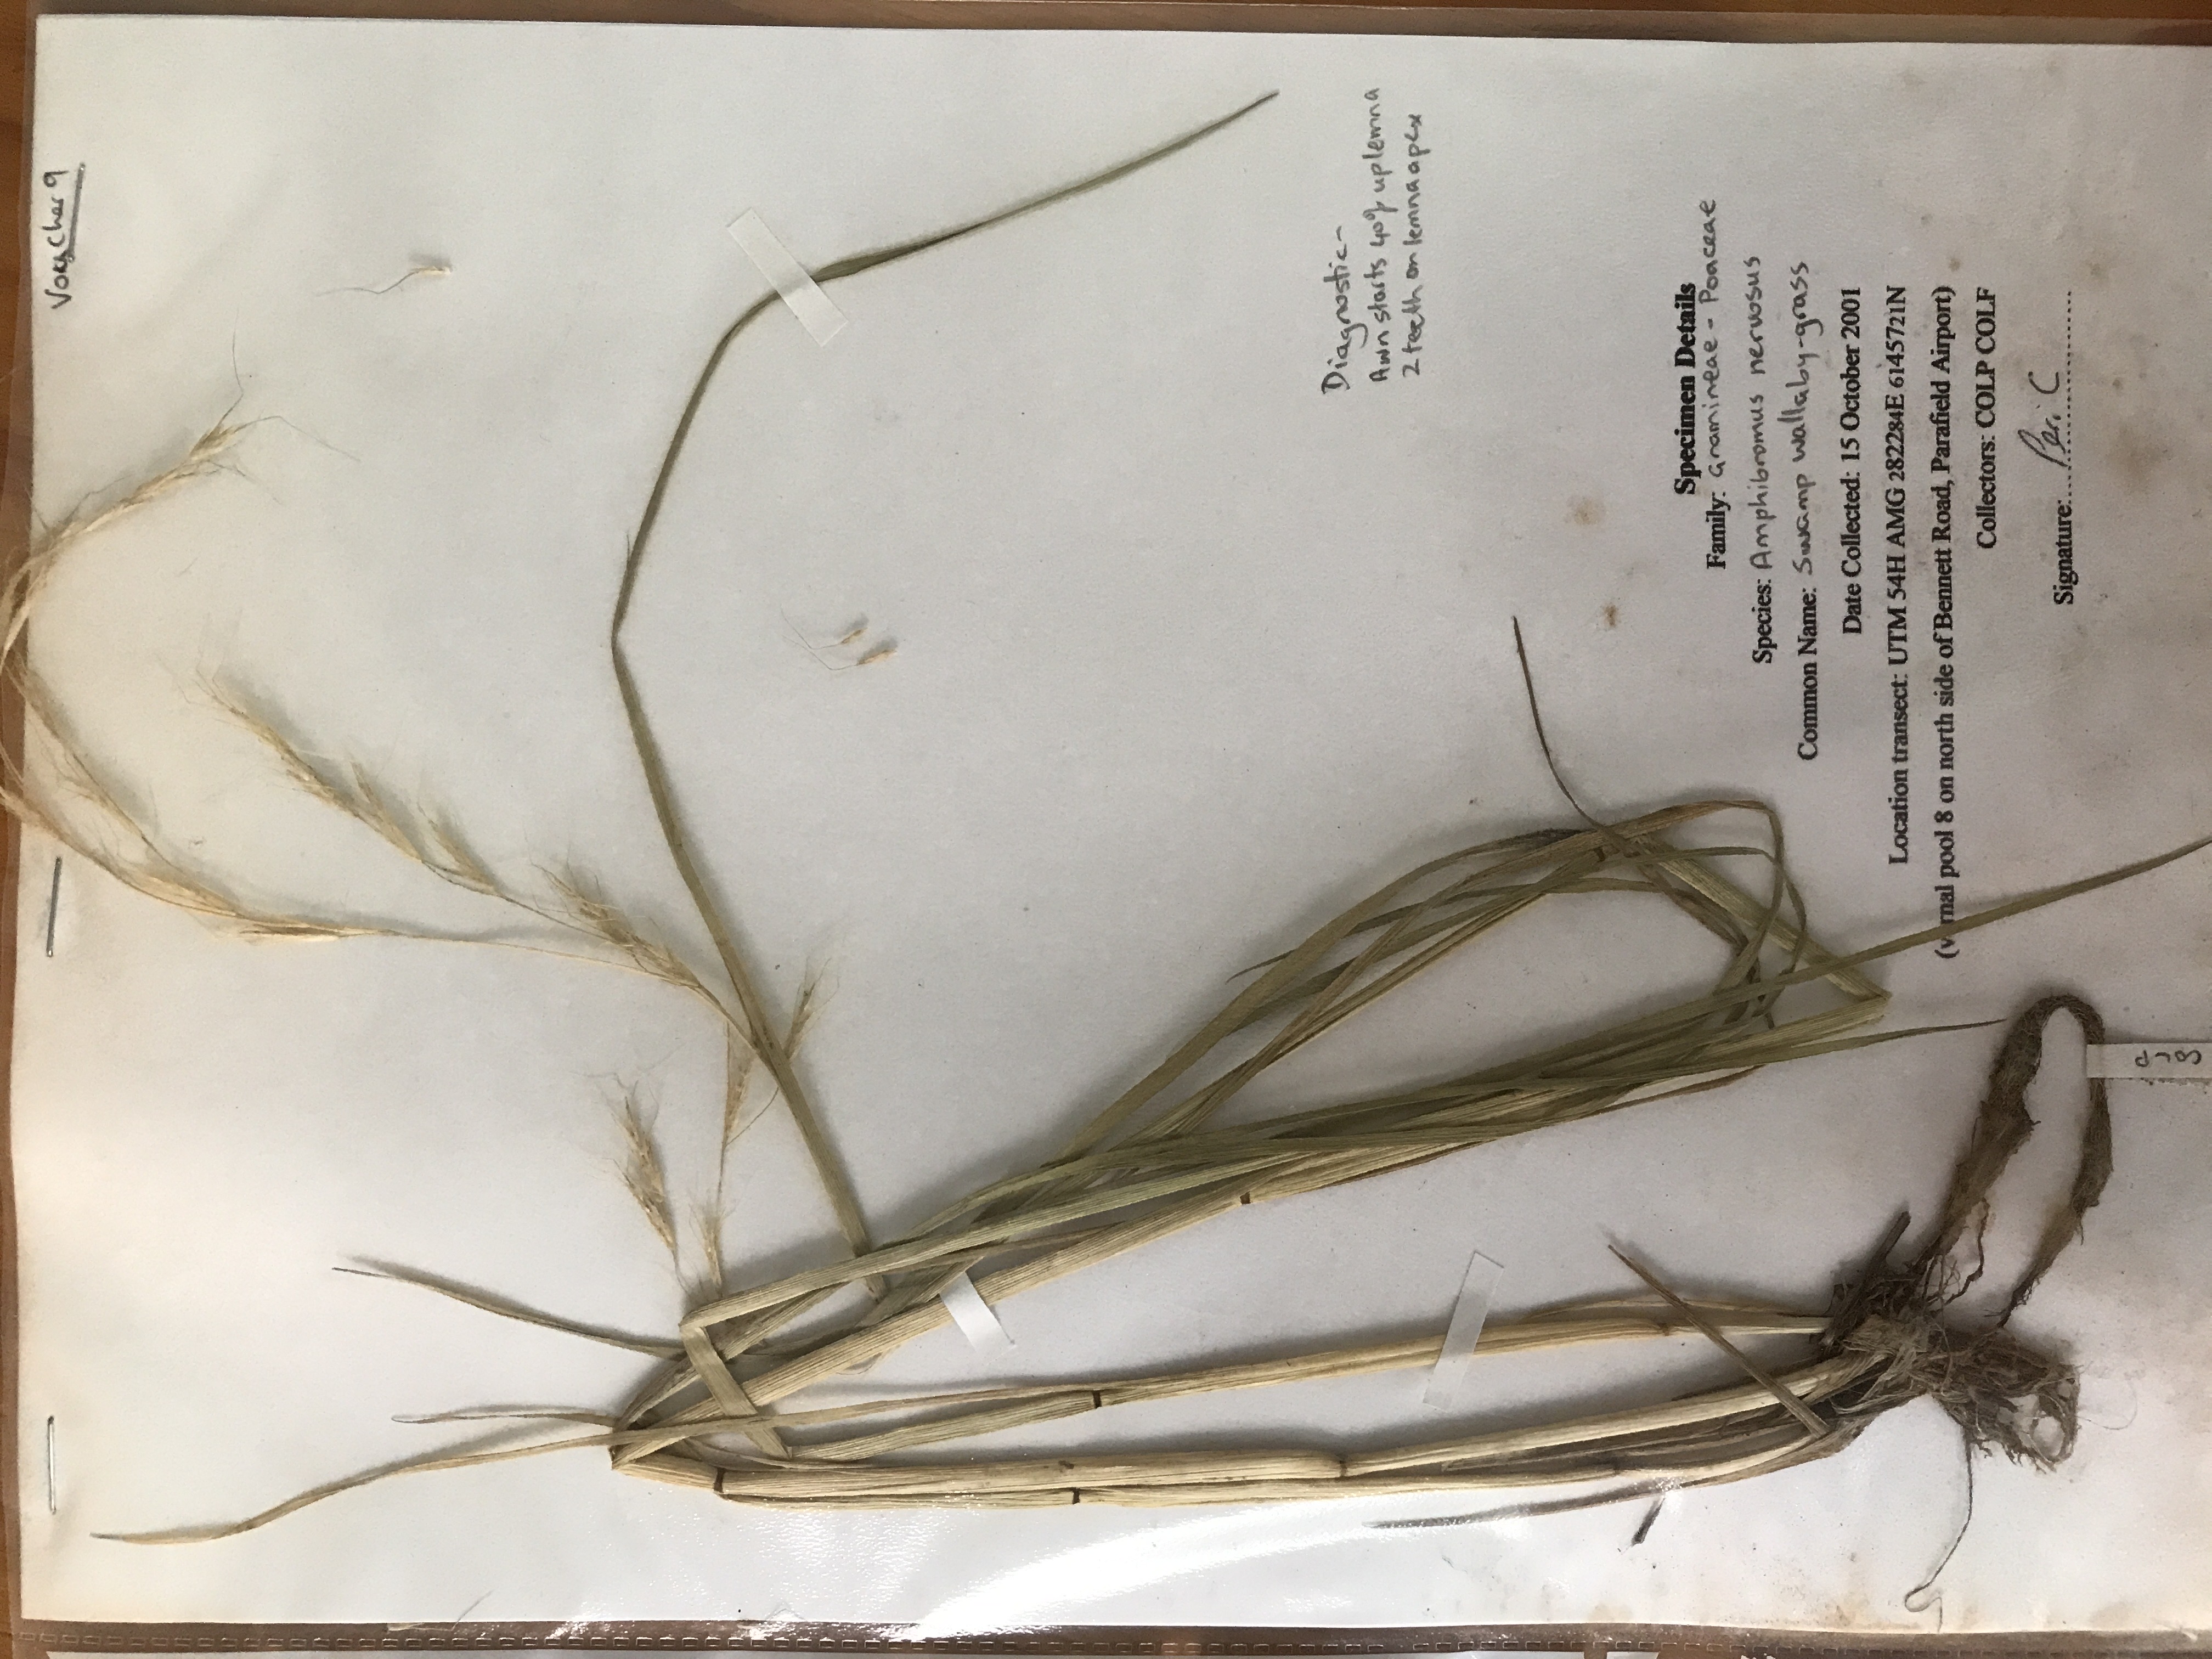 Voucher 9
Diagnostic-
Awn starts 40% up lemna
2 teeth on lemna apex
Specimen Details
Family: Gramineae - Poaceae
Species: Amphibromus nervosus
Common Name: Swamp wallaby-grass
Date Collected: 15 October 2001
Location transect: UTM 54H AMG 282284E 6145721N
(vernal pool 8 on north side of Bennett Road, Parafield Airport)
Collectors: COLP COLF
Signature: Peri C
COLP